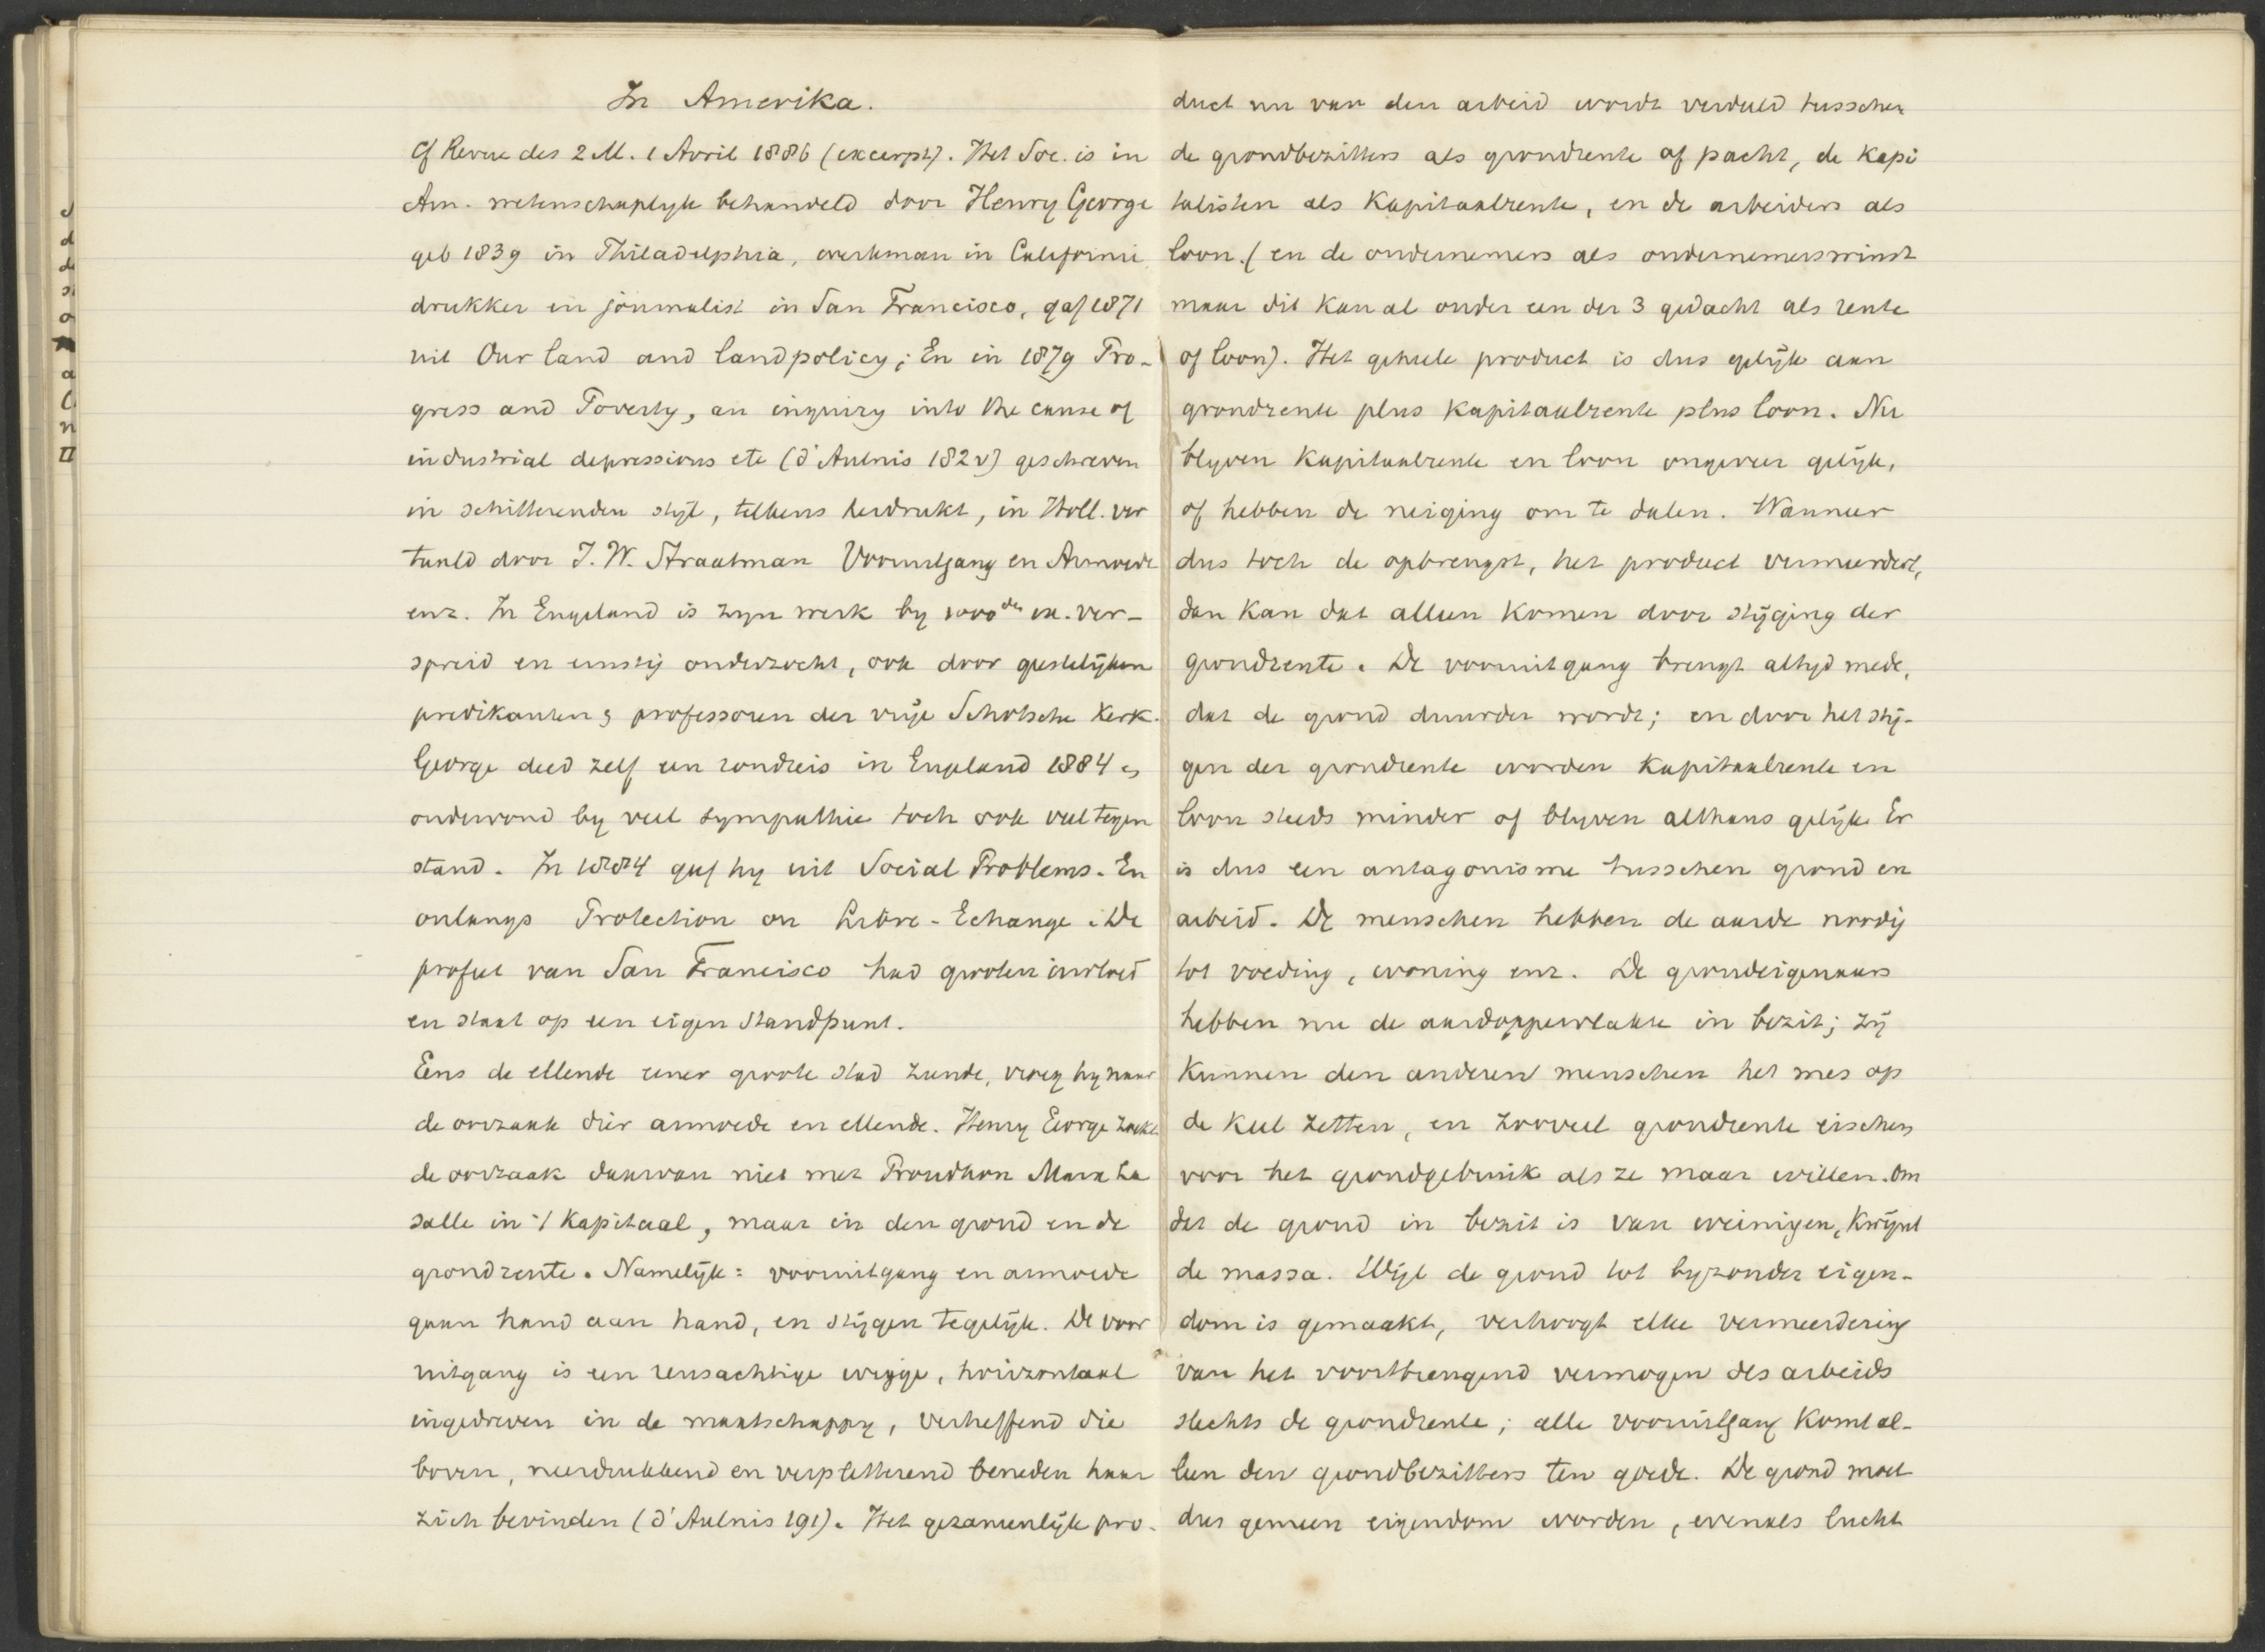 In Amerika.
Cf Revue des 2 M. 1 Avril 1886 (excerpt). Het Soc. is in
Am. wetenschaplyk behandeld door Henry George
geb 1839 in Philadelphia, werkman in Californie
drukker en journalist in San Francisco, gaf 1871
uit Our land and landpolicy; En in 1879 Pro-
gress and Poverty, an inquiry into the cause of
industrial depressions etc (d'Aulnis 182v) geschreven
in schitterenden stijl, telkens herdrukt, in Holl. ver
taald door J. W. Straatman Vooruitgang en Armoede
enz. In Engeland is zyn werk by 1000den ex. ver-
spreid en ernstig onderzocht, ook door geestelijken
predikanten & professoren der vrije Schotsche Kerk.
George deed zelf een rondreis in Engeland 1884 &
ondervond by veel sympathie toch ook veel tegen
stand. In 1884 gaf hy uit Social Problems. En
onlangs Protection or Libre-Echange. De
profeet van San Francisco had grooten invloed
en staat op een eigen standpunt.
Eens de ellende eener groote stad ziende, vroeg hy naar
de oorzaak dier armoede en ellende. Henry Eeorge zoekt
de oorzaak daarvan niet met Proudhon Marx La
salle in 't Kapitaal, maar in den grond en de
grondrente. Namelijk: vooruitgang en armoede
gaan hand aan hand, en stijgen tegelijk. De voor
uitgang is een reusachtige wigge, horizontaal
ingedreven in de maatschappy, verheffend die
boven, neerdrukkend en verpletterend beneden haar
zich bevinden (d'Aulnis 191). Het gezamenlijk pro-
duct nu van den arbeid wordt verdeeld tusschen
de grondbezitters als grondrente of pacht, de Kapi
talisten als Kapitaalrente, en de arbeiders als
loon. (en de ondernemers als ondernemerswinst
maar dit kan al onder een der 3 gedacht als rente
of loon). Het geheele product is dus gelijk aan
grondrente plus Kapitaalrente plus loon. Nu
blyven Kapitaalrente en loon ongeveer gelijk,
of hebben de neiging om te dalen. Wanneer
dus toch de opbrengst, het product vermeerdert,
dan kan dat alleen komen door stijging der
grondrente. De vooruitgang brengt altyd mede,
dat de grond duurder wordt; en door het stij-
gen der grondrente worden Kapitaalrente en
loon steeds minder of blyven althans gelijk. Er
is dus een antagonisme tusschen grond en
arbeid. De menschen hebben de aarde noodig
tot voeding, woning enz. De grondeigenaars
hebben nu de aardoppervlakte in bezit; zij
Kunnen den anderen menschen het mes op
de keel zetten, en zooveel grondrente eischen
voor het grondgebruik als ze maar willen. Om
dat de grond in bezit is van weinigen, Kwijnt
de massa. Wijl de grond tot byzonder eigen-
dom is gemaakt, verhoogt elke vermeerdering
van het voortbrengend vermogen des arbeids
slechts de grondrente; alle vooruitgang komt al-
leen den grondbezitters ten goede. De grond moet
dus gemeen eigendom worden, evenals lucht